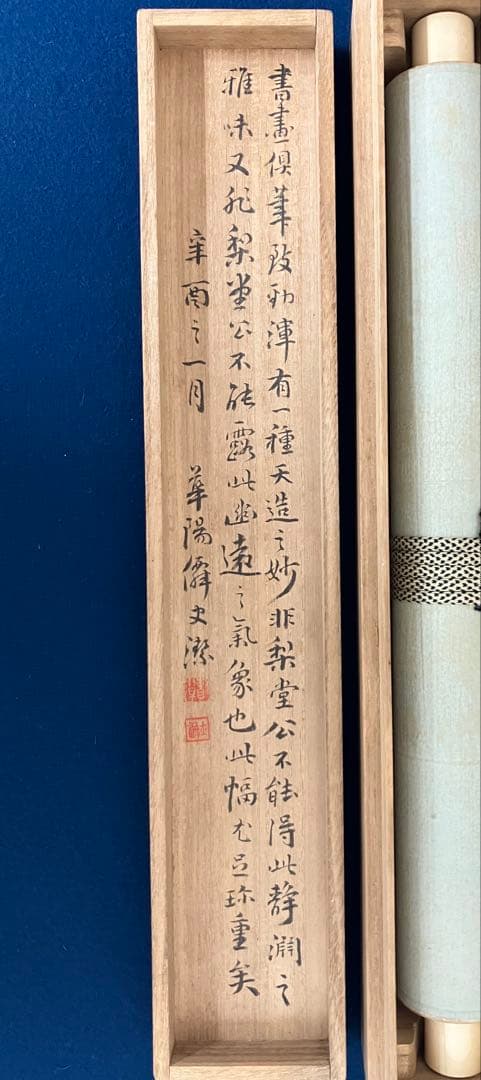 書畫俱筆致勁渾有一種天造之妙非梨堂公不能得此靜淵之
雅味又非梨堂公不能露此幽遠之氣象也此幅尤足珍重矣
辛酉之一月 華陽僊史潔